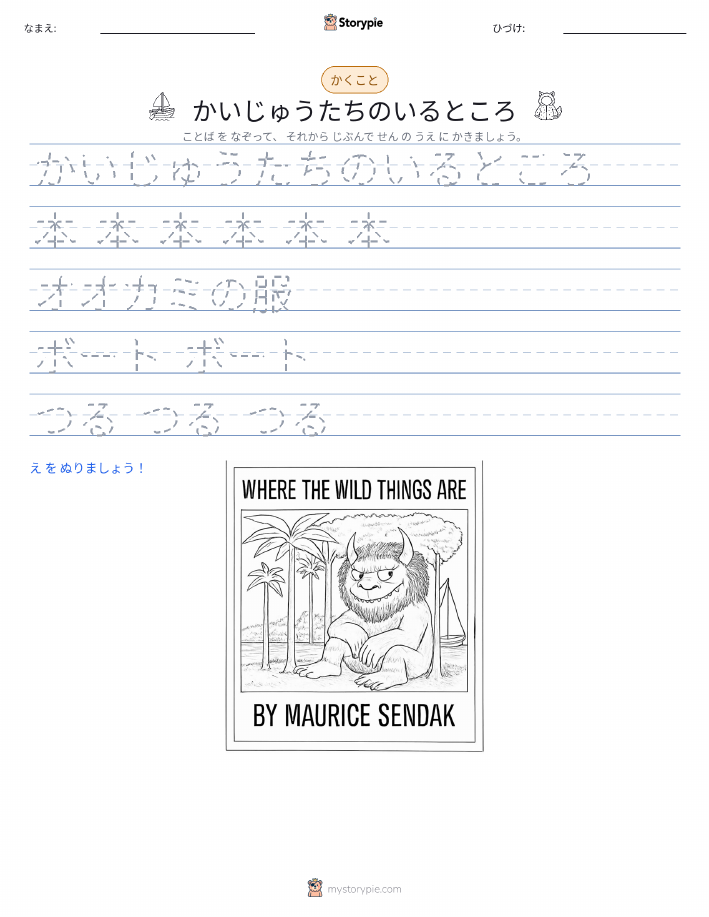 なまえ:
Storypie
ひづけ:
かくこと
かいじゅうたちのいるところ
ことば を なぞって、 それから じぶんで せん の うえ に かきましょう。
かいじゅうたちのいるところ
本 本 本 本 本 本
オオカミの服
ボート ボート
つる つる つる
え を ぬりましょう！
WHERE THE WILD THINGS ARE
BY MAURICE SENDAK
mystorypie.com